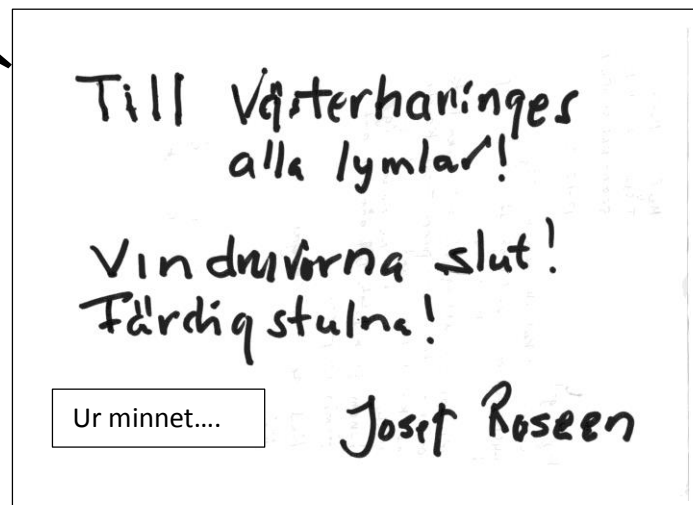 Till Västerhaninges
alla lymlar!
Vindruvorna slut!
Färdigstulna!
Ur minnet....
Josef Roseen